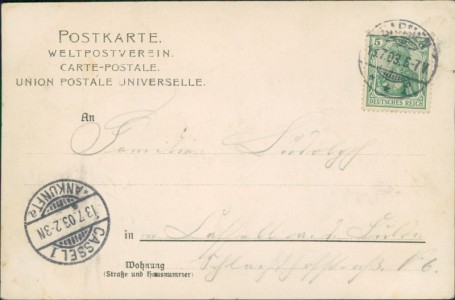 POSTKARTE.
WELTPOSTVEREIN.
CARTE-POSTALE.
UNION POSTALE UNIVERSELLE.
5
DEUTSCHES REICH
7.03.
An
Familie Rudolph
CASSEL 1
13.7.03.2-3N
*ANKUNFT*
in Cassel
Wohnung
(Straße und Hausnummer)
Schlachthofstraße